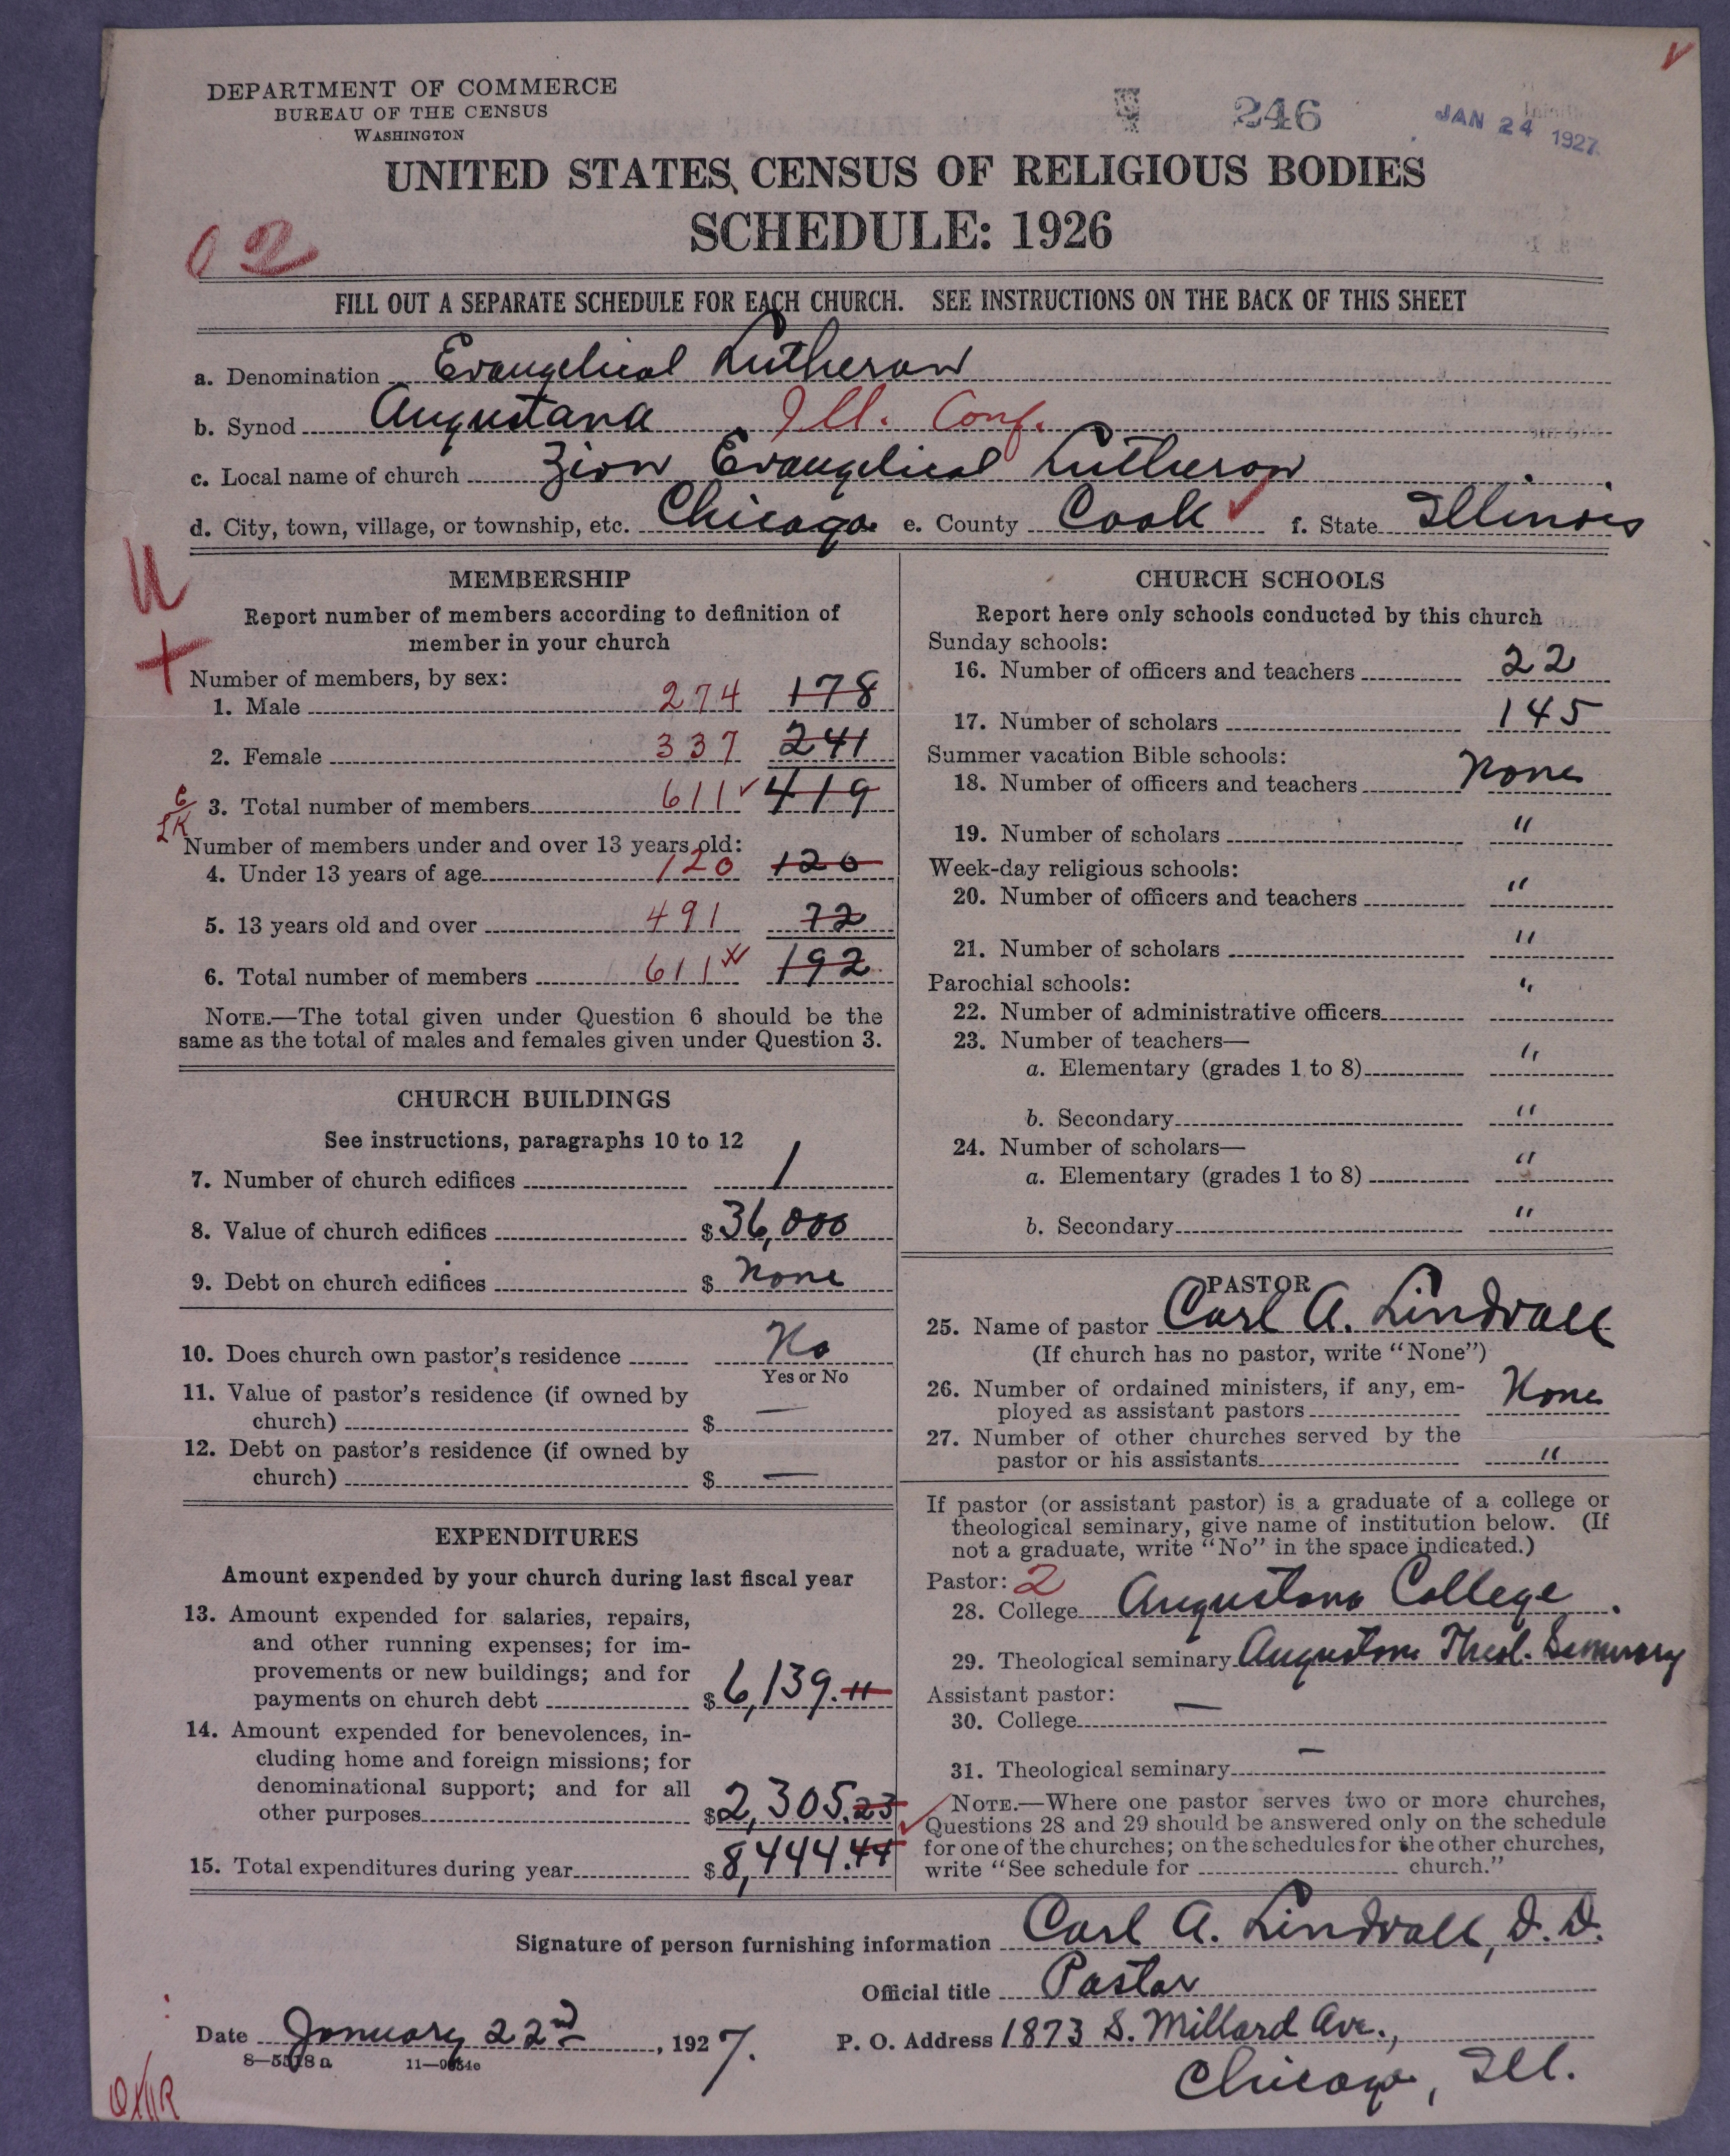 DEPARTMENT OF COMMERCE
BUREAU OF THE CENSUS
WASHINGTON
246
JAN 24 1927
UNITED STATES CENSUS OF RELIGIOUS BODIES
SCHEDULE: 1926
02
FILL OUT A SEPARATE SCHEDULE FOR EACH CHURCH. SEE INSTRUCTIONS ON THE BACK OF THIS SHEET
a. Denomination Evangelical Lutheran
b. Synod Augustana Ill. Conf.
c. Local name of church Zion Evangelical Lutheran
d. City, town, village, or township, etc. Chicago e. County Cook f. State Illinois
MEMBERSHIP
Report number of members according to definition of
member in your church
Number of members, by sex:
1. Male 274 178
2. Female 337 241
3. Total number of members 611 419
Number of members under and over 13 years old:
4. Under 13 years of age 120 120
5. 13 years old and over 491 72
6. Total number of members 611 192
NOTE.—The total given under Question 6 should be the
same as the total of males and females given under Question 3.
CHURCH BUILDINGS
See instructions, paragraphs 10 to 12
7. Number of church edifices 1
8. Value of church edifices $ 36,000
9. Debt on church edifices $ None
10. Does church own pastor's residence No
Yes or No
11. Value of pastor's residence (if owned by
church) $ —
12. Debt on pastor's residence (if owned by
church) $ —
EXPENDITURES
Amount expended by your church during last fiscal year
13. Amount expended for salaries, repairs,
and other running expenses; for im-
provements or new buildings; and for
payments on church debt $ 6,139.11
14. Amount expended for benevolences, in-
cluding home and foreign missions; for
denominational support; and for all
other purposes $ 2,305.23
15. Total expenditures during year $ 8,444.44
CHURCH SCHOOLS
Report here only schools conducted by this church
Sunday schools:
16. Number of officers and teachers 22
17. Number of scholars 145
Summer vacation Bible schools:
18. Number of officers and teachers None
19. Number of scholars "
Week-day religious schools:
20. Number of officers and teachers "
21. Number of scholars "
Parochial schools:
22. Number of administrative officers "
23. Number of teachers—
a. Elementary (grades 1 to 8) "
b. Secondary "
24. Number of scholars—
a. Elementary (grades 1 to 8) "
b. Secondary "
PASTOR
25. Name of pastor Carl A. Lindvall
(If church has no pastor, write "None")
26. Number of ordained ministers, if any, em-
ployed as assistant pastors None
27. Number of other churches served by the
pastor or his assistants "
If pastor (or assistant pastor) is a graduate of a college or
theological seminary, give name of institution below. (If
not a graduate, write "No" in the space indicated.)
Pastor: 2
28. College Augustana College
29. Theological seminary Augustana Theol. Seminary
Assistant pastor:
30. College —
31. Theological seminary —
NOTE.—Where one pastor serves two or more churches,
Questions 28 and 29 should be answered only on the schedule
for one of the churches; on the schedules for the other churches,
write "See schedule for church."
Signature of person furnishing information Carl A. Lindvall, D.D.
Official title Pastor
Date January 22nd, 1927. P. O. Address 1873 S. Millard Ave.,
Chicago, Ill.